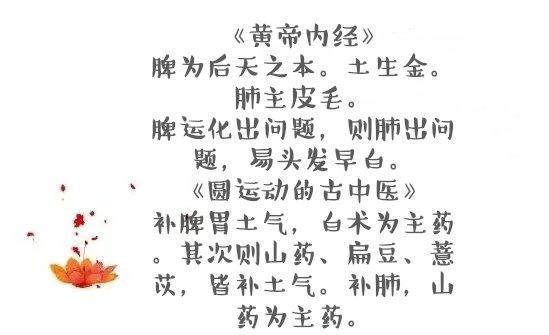 《黄帝内经》
脾为后天之本。土生金。
肺主皮毛。
脾运化出问题，则肺出问
题，易头发早白。
《圆运动的古中医》
补脾胃土气，白术为主药
。其次则山药、扁豆、薏
苡，皆补土气。补肺，山
药为主药。